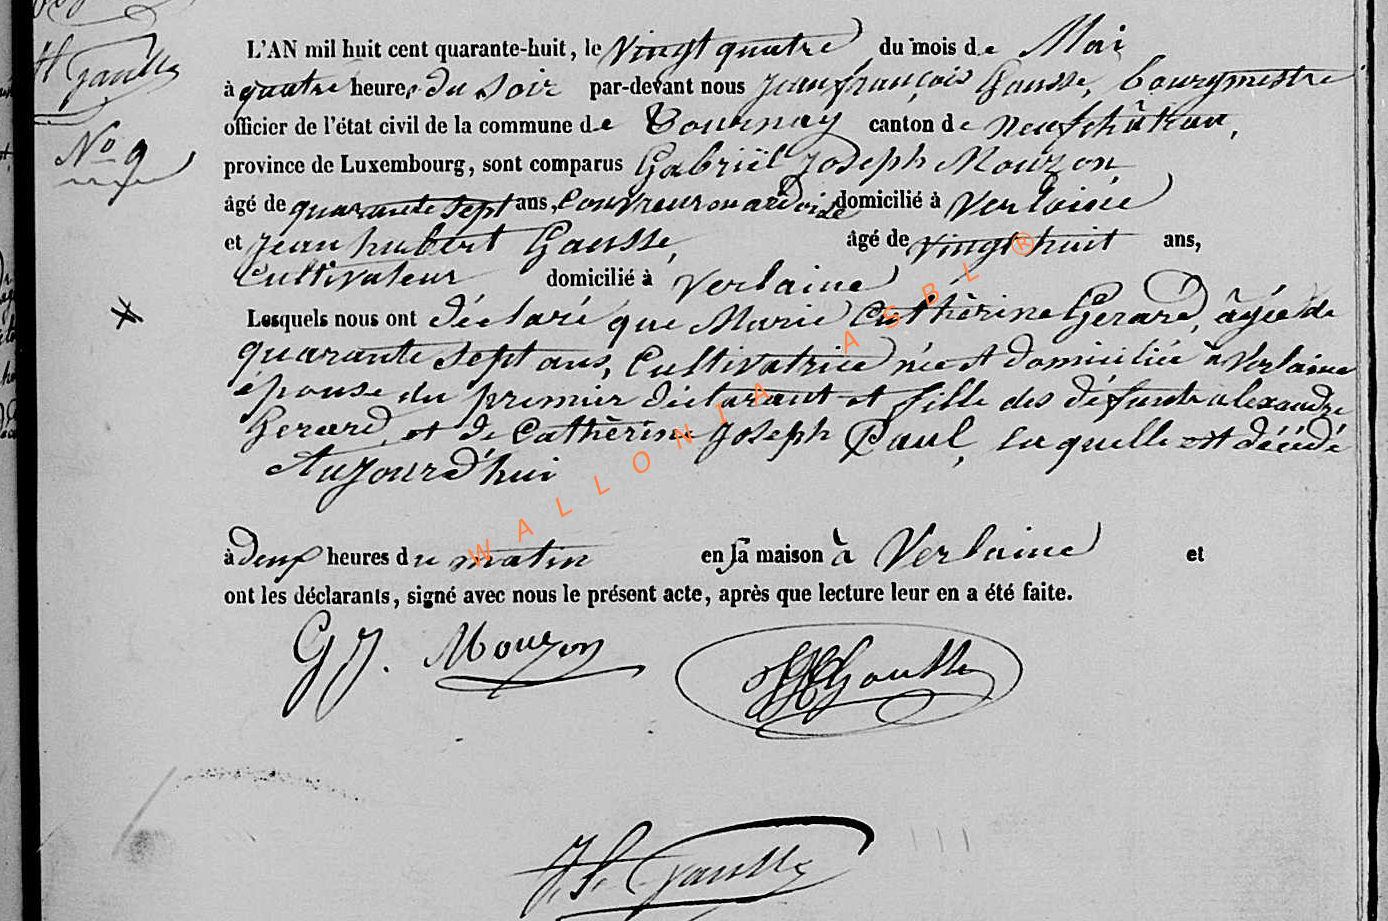 L'AN mil huit cent quarante-huit, le Vingt quatre du mois de Mai
à quatre heures du Soir par-devant nous Jean françois Gousse, bourgmestre
officier de l'état civil de la commune de Tournay canton de neufchâteau,
province de Luxembourg, sont comparus Gabriël Joseph Mouzon
No 9
âgé de quarante Sept ans, Couvreur en ardoise domicilié à Verlaine
et Jean hubert Gousse, âgé de vingt huit ans,
Cultivateur domicilié à Verlaine
Lesquels nous ont déclaré que Marie Cathèrine Gerard, âgée de
quarante sept ans, Cultivatrice née et domiciliée à Verlaine
épouse du premier déclarant et fille des défunts alexandre
Gerard et de Cathèrine Joseph Paul, laquelle est décédé
Aujourd'hui
à deux heures du matin en sa maison à Verlaine et
ont les déclarants, signé avec nous le présent acte, après que lecture leur en a été faite.
GJ. Mouzon
JH Gousse
J.f. Gousse
WALLONIA ASBL ®